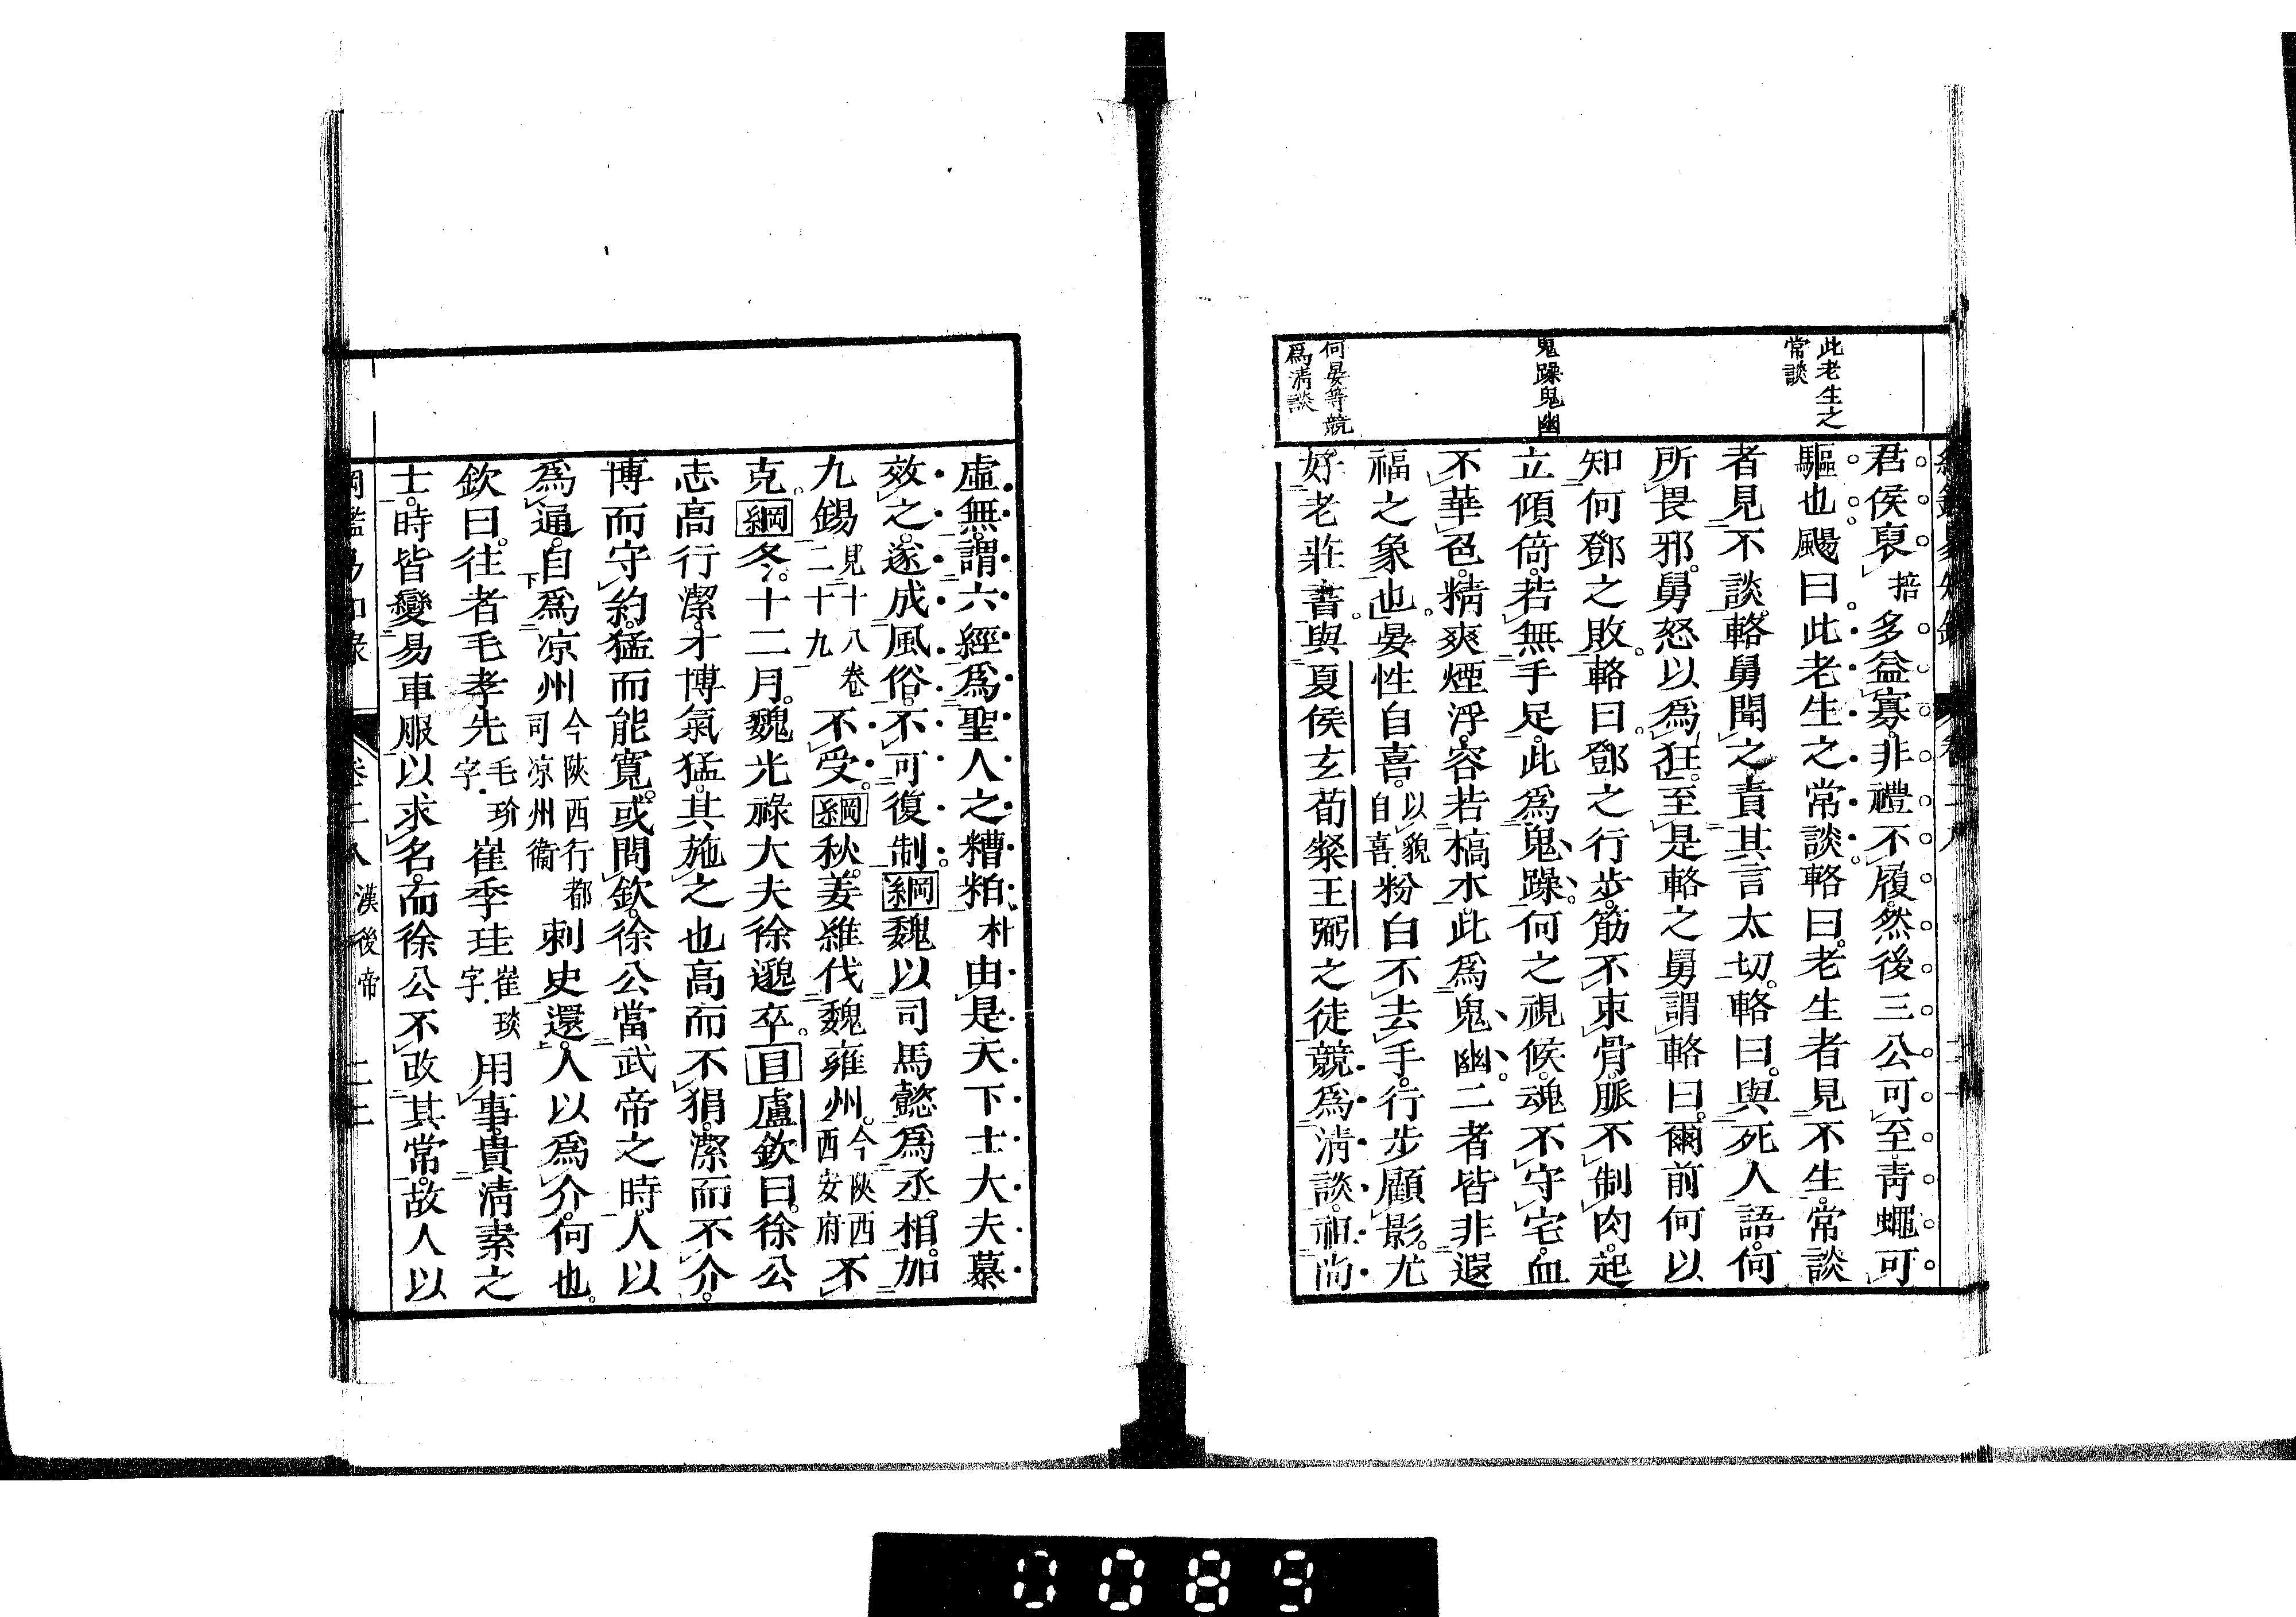 此老生之
常談
鬼躁鬼幽
何晏等競
爲清談
君侯裒掊多益寡。非禮不履。然後三公可至。青蠅可
驅也。颺曰。此老生之常談。輅曰。老生者見不生。常談
者見不談。輅舅聞之。責其言太切。輅曰。與死人語。何
所畏邪。舅怒以爲狂。至是輅之舅謂輅曰。爾前何以
知何鄧之敗。輅曰。鄧之行步。筋不束骨。脈不制肉。起
立傾倚。若無手足。此爲鬼躁。何之視候。魂不守宅。血
不華色。精爽煙浮。容若槁木。此爲鬼幽。二者皆非遐
福之象也。晏性自喜。以貌自喜粉白不去手。行步顧影。尤
好老莊書。與夏侯玄荀粲王弼之徒競爲清談。祖尚
虛無。謂六經爲聖人之糟粕朴由是天下士大夫慕
效之。遂成風俗。不可復制。綱魏以司馬懿爲丞相。加
九錫見十八卷二十九不受。綱秋。姜維伐魏雍州。今陝西西安府不
克。綱冬。十二月。魏光祿大夫徐邈卒。目盧欽曰。徐公
志高行潔。才博氣猛。其施之也高而不狷。潔而不介。
博而守約。猛而能寬。或問欽。徐公當武帝之時。人以
爲通。自爲涼州今陝西行都司涼州衞刺史還。人以爲介。何也。
欽曰。往者毛孝先毛玠字崔季珪崔琰字用事。貴清素之
士。時皆變易車服以求名。而徐公不改其常。故人以
漢後帝
0089